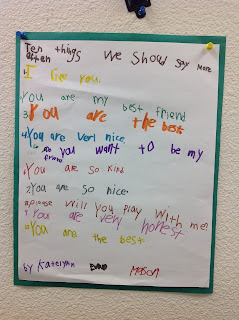 Ten things we should say more
often
1. I like you.
You are my best friend
3 You are the best
4 You are veri nice
do you want to be my
friend
6 You are so kind
7 You are so nice.
8 please will you play with me?
9 You are very honest
10 You are the best
by Katelynn Mason